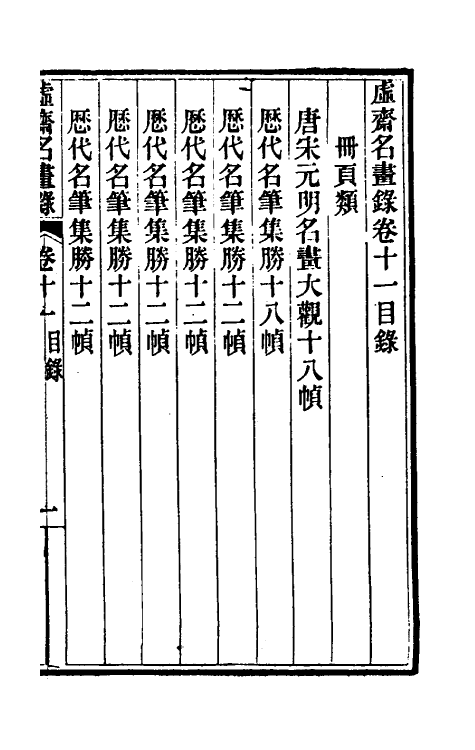 虛齋名畫錄卷十一目錄
冊頁類
唐宋元明名畫大觀十八幀
歷代名筆集勝十八幀
歷代名筆集勝十二幀
歷代名筆集勝十二幀
歷代名筆集勝十二幀
歷代名筆集勝十二幀
歷代名筆集勝十二幀
虛齋名畫錄 卷十一 目錄 一